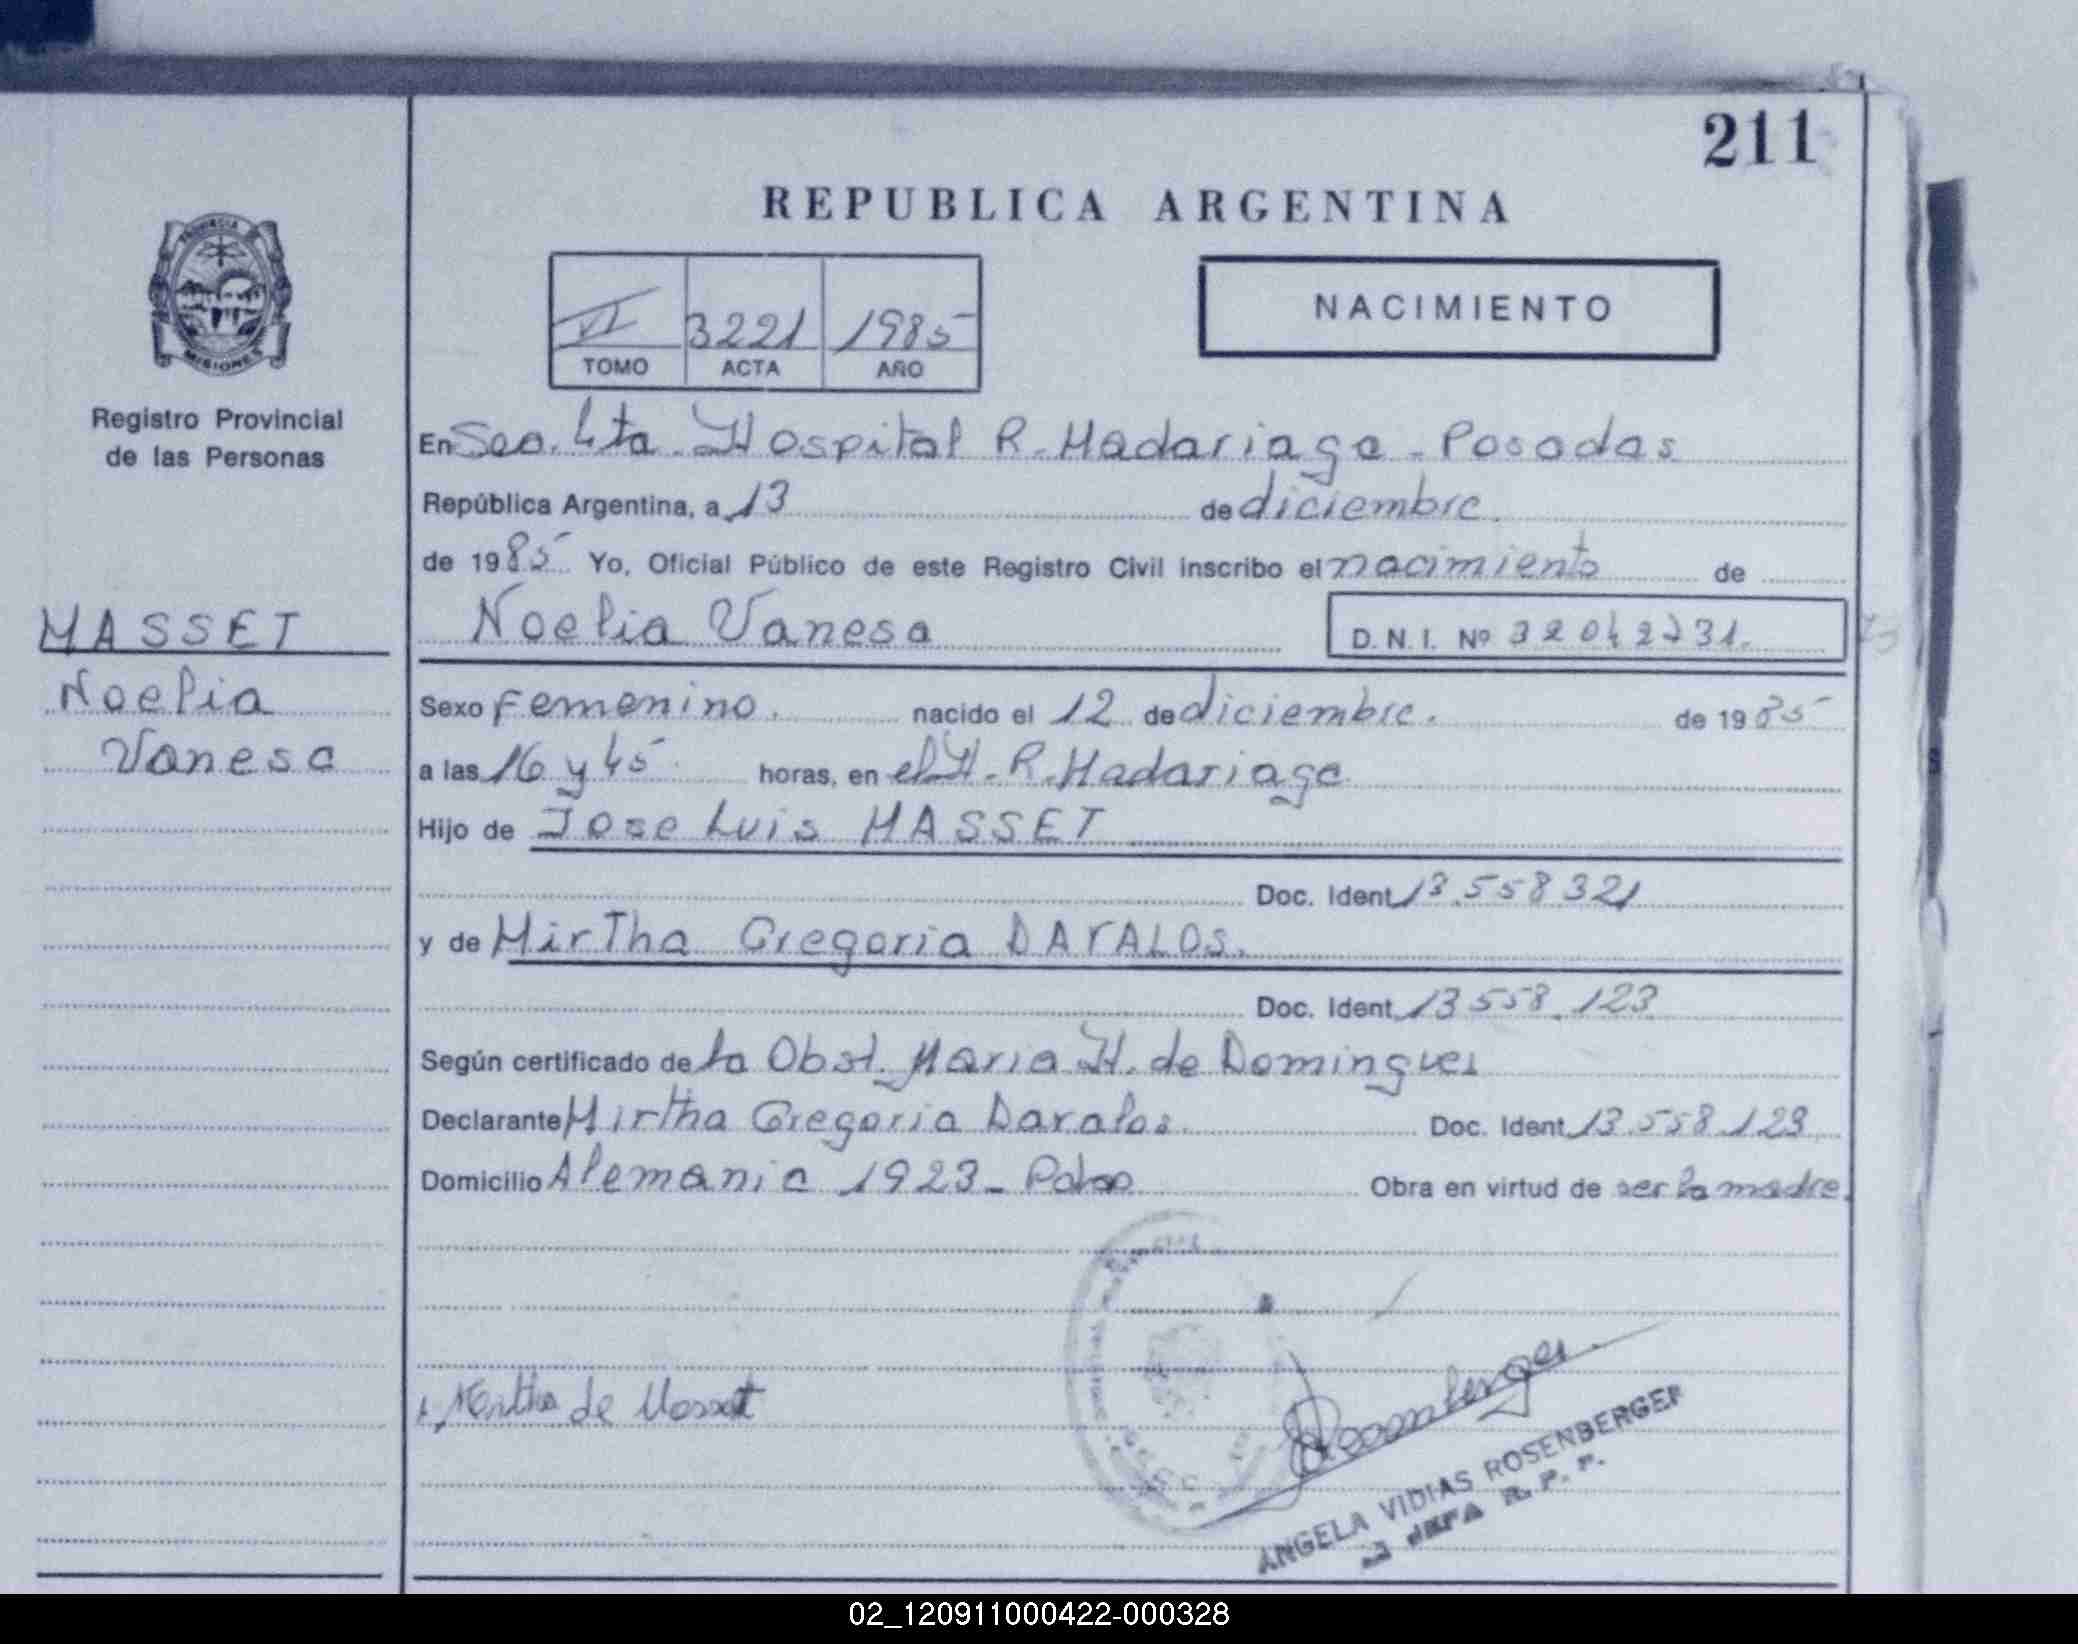 211
REPUBLICA ARGENTINA
PROVINCIA DE
MISIONES
Registro Provincial
de las Personas
VI 3221 1985
TOMO ACTA AÑO
NACIMIENTO
En Sec. 4ta. Hospital R. Madariaga - Posadas
República Argentina, a 13 de diciembre
de 1985 Yo, Oficial Público de este Registro Civil inscribo el nacimiento de
MASSET
Noelia
Vanesa
Noelia Vanesa D. N. I. Nº 32042731.
Sexo Femenino. nacido el 12 de diciembre. de 1985
a las 16 y 45 horas, en el H. R. Madariaga
Hijo de Jose Luis MASSET
Doc. Ident. 13.558321
y de Mirtha Gregoria DAVALOS.
Doc. Ident. 13558.123
Según certificado de la Obst. Maria H. de Domingues
Declarante Mirtha Gregoria Davalos Doc. Ident. 13.558.123
Domicilio Alemania 1923 - Pdas Obra en virtud de ser la madre.
Mirtha de Masset
ANGELA VIDIAS ROSENBERGER
JEFA R. P. P.
02_120911000422-000328